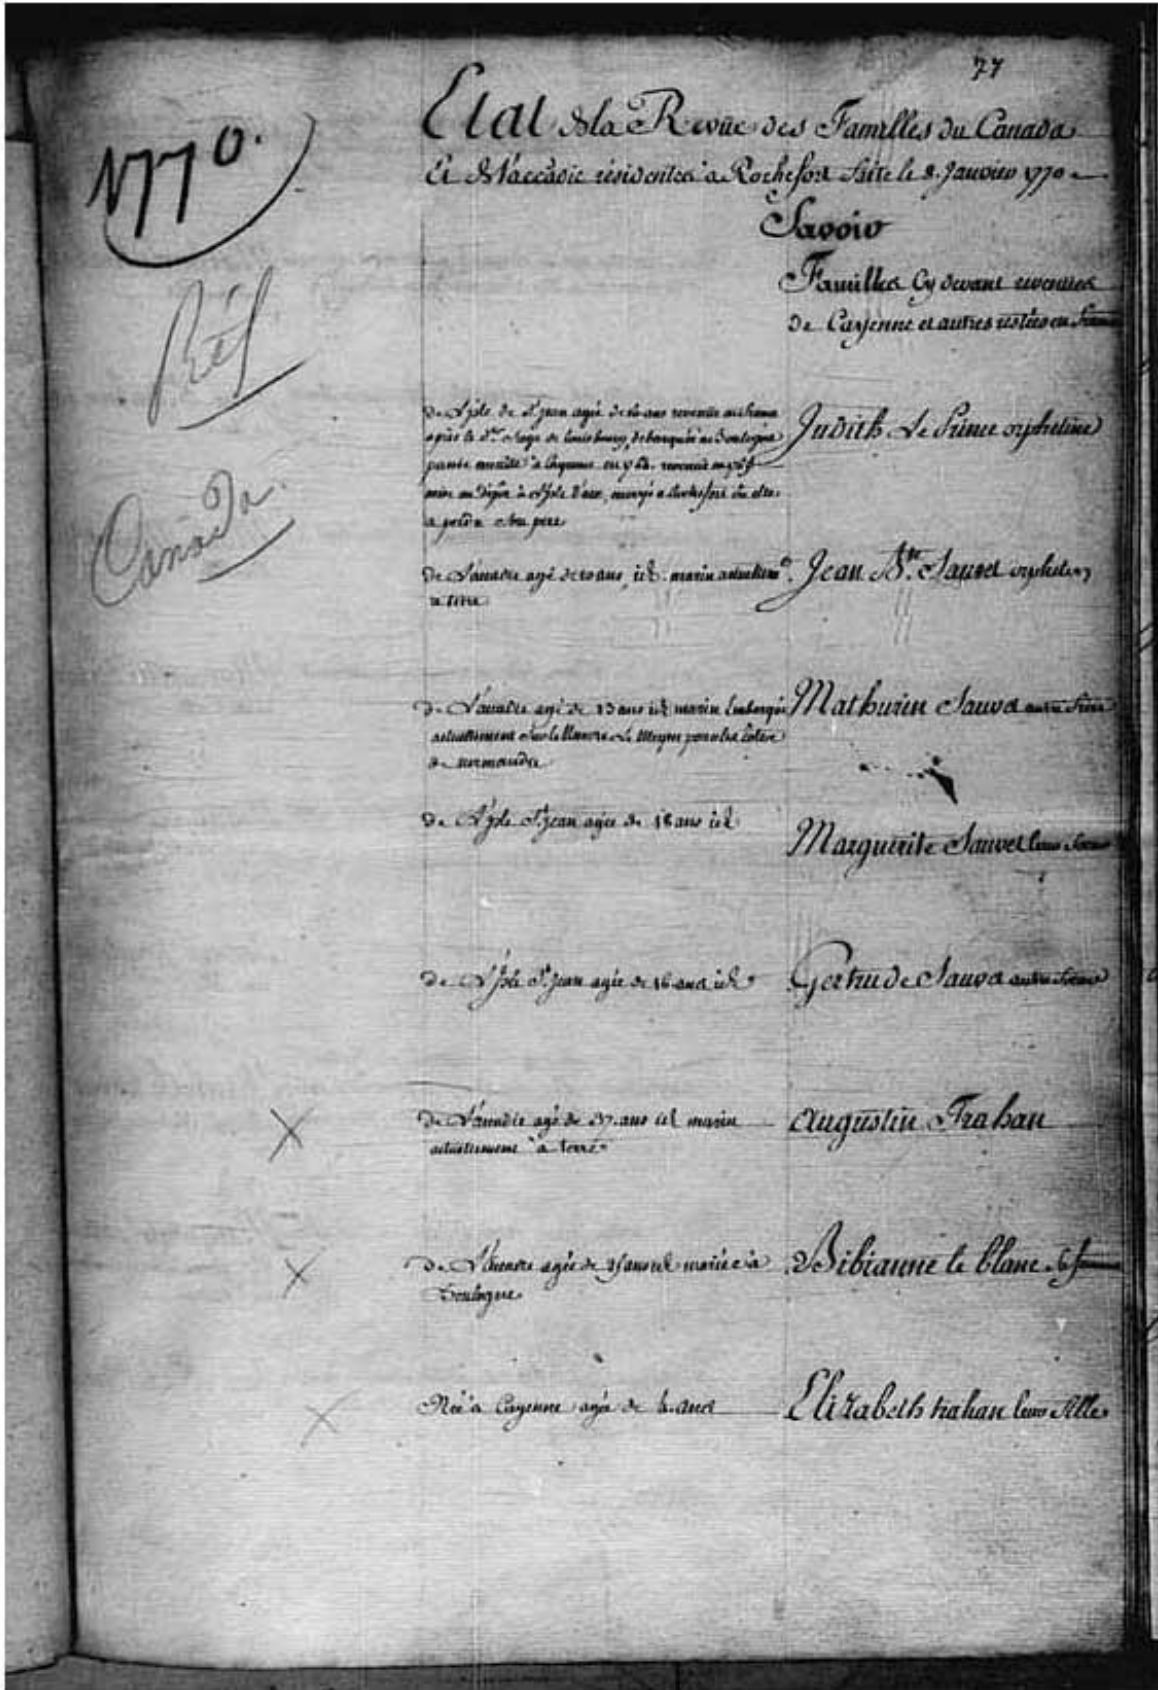 77
1770.
Etat de la Revüe des Familles du Canada
Et de L'accadie résidentes à Rochefort faite le 8. Janvier 1770
Savoir
Familles Cy devant revenues
de Cayenne et autres restées en france
Réf
Canada.
De L'isle de St. Jean agée de ans revenüe en france
après le d.er siege de Louisbourg, debarquée à Boulogne
passée ensuite à Cayenne en revenüe en
mise au Dépôt à L'isle d'aix, à Rochefort
a perdu son pere
Judith Le Prince orpheline
De L'acadie agé de 20 ans, id. marin actuellem.t
a terre
Jean B.te Sauvet orphelin
De L'acadie agé de 23 ans id. marin Embarqué
actuellement sur le Navire Le pour les Costes
de normandie
Mathurin Sauvet autre frere
De L'isle St. Jean agée de 18 ans id.
Marguerite Sauvet leur Soeur
De L'isle St. Jean agée de 16 ans id.
Gertrude Sauvet autre Soeur
De L'acadie agé de 37. ans id. marin
actuellement à terre
Augustin Trahan
De L'acadie agée de ans id. mariée à
Boulogne
Bibianne le blanc Sa femme
Née à Cayenne agée de 4. ans
Elizabeth trahan leur fille